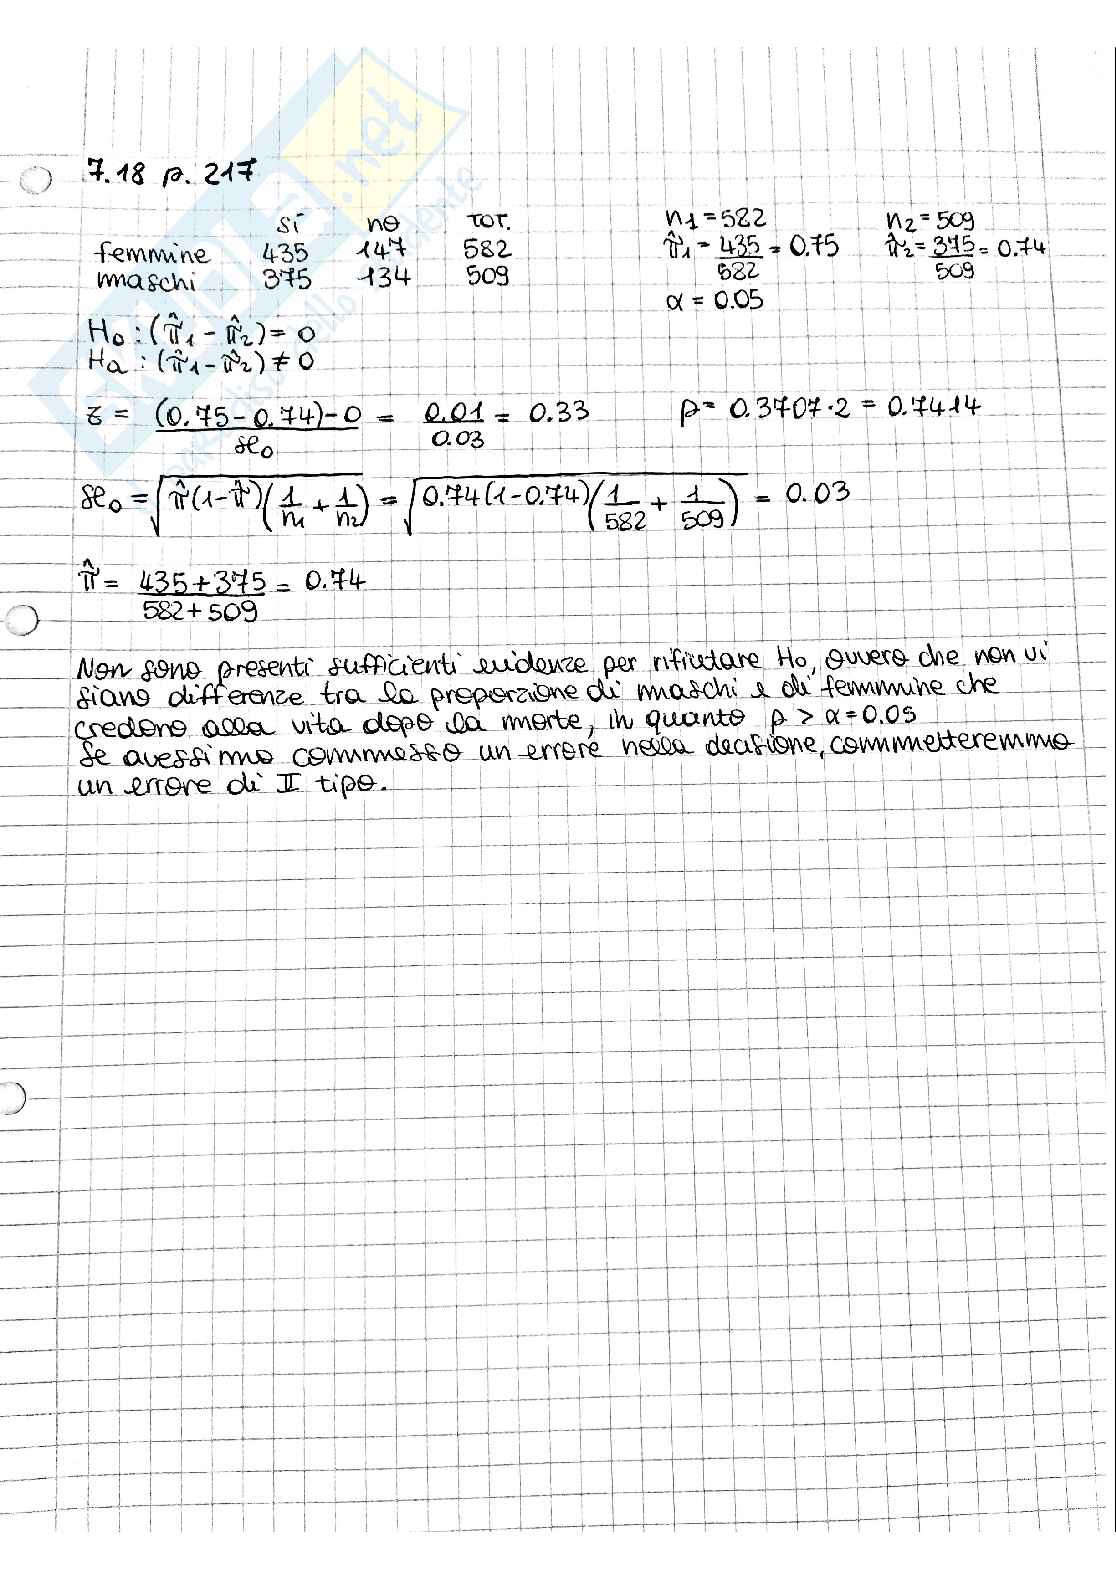 7.18 p. 217
sí no TOT.
femmine 435 147 582
maschi 375 134 509
n1 = 582 n2 = 509
π̂1 = 435/582 = 0.75 π̂2 = 375/509 = 0.74
α = 0.05
H0 : (π̂1 - π̂2) = 0
Ha : (π̂1 - π̂2) ≠ 0
z = (0.75 - 0.74) - 0 / se0 = 0.01/0.03 = 0.33 p = 0.3707·2 = 0.7414
se0 = √π̂(1-π̂)(1/n1 + 1/n2) = √0.74(1-0.74)(1/582 + 1/509) = 0.03
π̂ = 435+375/582+509 = 0.74
Non sono presenti sufficienti evidenze per rifiutare H0, ovvero che non vi
siano differenze tra la proporzione di maschi e di femmine che
credono alla vita dopo la morte, in quanto p > α = 0.05
Se avessimo commesso un errore nella decisione, commetteremmo
un errore di II tipo.